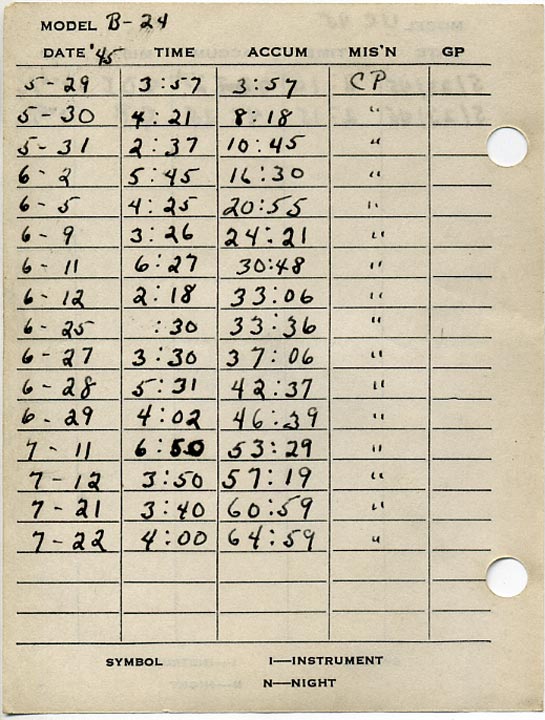 MODEL B-24
DATE '45 TIME ACCUM MIS'N GP
5-29 3:57 3:57 CP
5-30 4:21 8:18 "
5-31 2:37 10:45 "
6-2 5:45 16:30 "
6-5 4:25 20:55 "
6-9 3:26 24:21 "
6-11 6:27 30:48 "
6-12 2:18 33:06 "
6-25 :30 33:36 "
6-27 3:30 37:06 "
6-28 5:31 42:37 "
6-29 4:02 46:39 "
7-11 6:50 53:29 "
7-12 3:50 57:19 "
7-21 3:40 60:59 "
7-22 4:00 64:59 "
SYMBOL I—INSTRUMENT
N—NIGHT